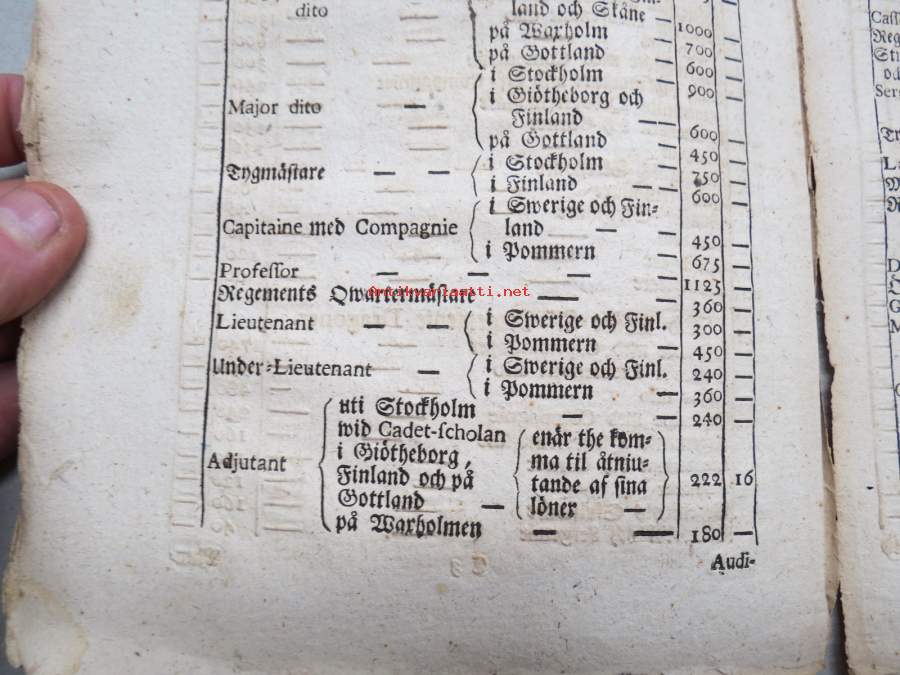 dito
land och Skåne —
på Waxholm — 1000 —
på Gottland — 700 —
i Stockholm 600 —
Major dito — i Giötheborg och 900 —
Finland — —
på Gottland — 600 —
Tygmästare — — i Stockholm 450 —
i Finland — — 750 —
Capitaine med Compagnie i Swerige och Fin= 600 —
land — —
i Pommern — 450 —
Professor — — — 675 —
Regements Qwartermästare — 1125 —
antikvariaatti.net
Lieutenant — — i Swerige och Finl. 360 —
i Pommern — 300 —
Under=Lieutenant — i Swerige och Finl. 450 —
i Pommern — 240 —
360 —
uti Stockholm — — 240 —
wid Cadet-ſcholan
Adjutant i Giötheborg, Finland och på Gottland — enär the kom=
ma til åtnju=
tande af sina
löner — 222 16
på Waxholmen — — 180 —
Audi-
Caſſ
Reg
Ser